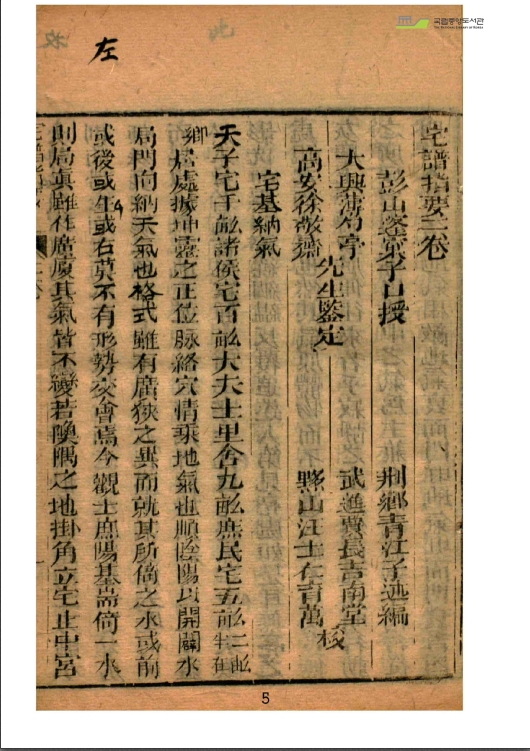 국립중앙도서관
左
宅譜指要二卷
彭山蓬萊子口授
荆鄉青江子述編
大興薄筍亭
高安徐敬齋
先生鑒定
武進費長吉南堂
黟山汪士在百萬
校
宅基納氣
天子宅千畝諸侯宅百畝大夫士里舍九畝庶民宅五畝
二畝半在
鄉居處據坤靈之正位脉絡穴情乘地氣也順陰陽以開闢水
局門向納天氣也格式雖有廣狹之異而就其所倚之水或前
或後或左或右莫不有形勢交會焉今觀士庶陽基耑倚一水
則局真雖作廣廈其氣皆不變若隩隅之地掛角立宅止中宮
5